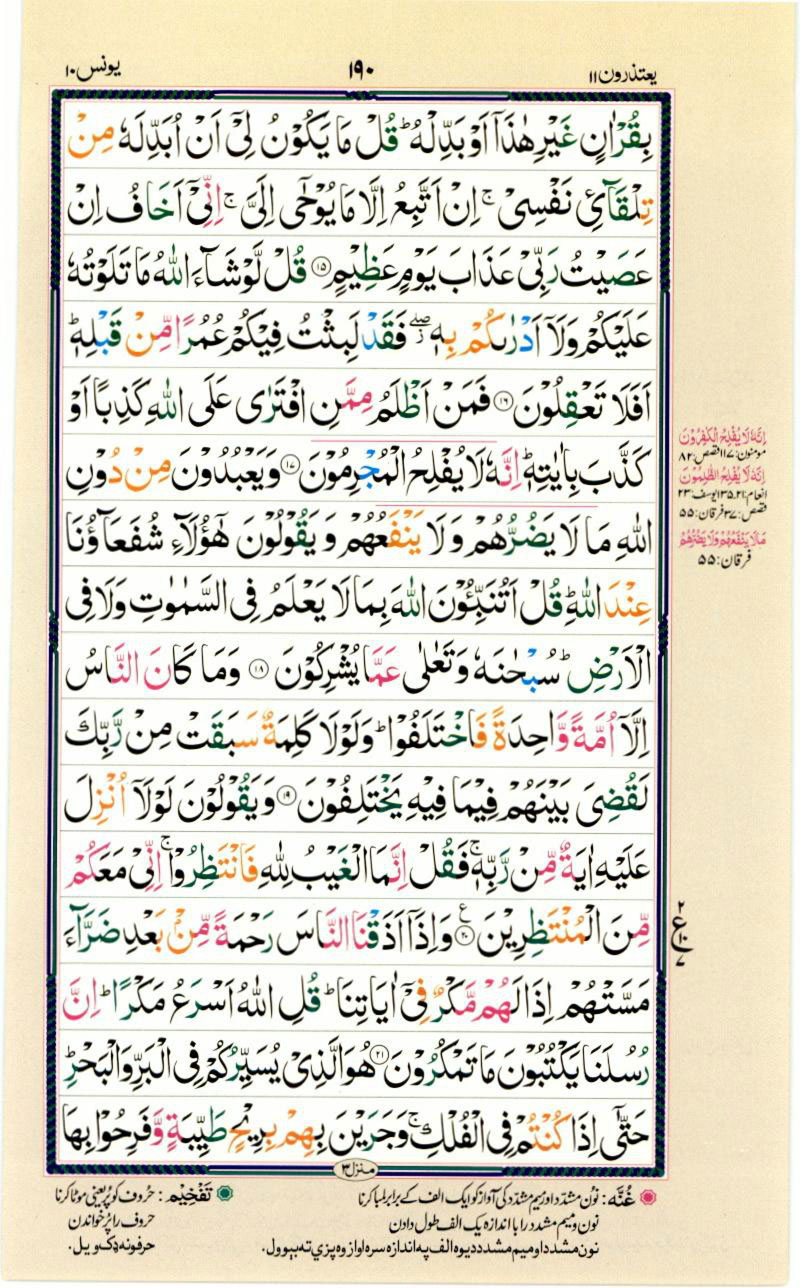 یعتذرون ۱۱
۱۹۰
یونس ۱۰
بِقُرْاٰنٍ غَیْرِ هٰذَاۤ اَوْ بَدِّلْهُ ؕ قُلْ مَا یَكُوْنُ لِیْۤ اَنْ اُبَدِّلَهٗ مِنْ
تِلْقَآئِ نَفْسِیْ ۚ اِنْ اَتَّبِعُ اِلَّا مَا یُوْحٰۤی اِلَیَّ ۚ اِنِّیْۤ اَخَافُ اِنْ
عَصَیْتُ رَبِّیْ عَذَابَ یَوْمٍ عَظِیْمٍ ۝۱۵ قُلْ لَّوْ شَآءَ اللّٰهُ مَا تَلَوْتُهٗ
عَلَیْكُمْ وَ لَاۤ اَدْرٰىكُمْ بِهٖ ۖؗ فَقَدْ لَبِثْتُ فِیْكُمْ عُمُرًا مِّنْ قَبْلِهٖ ؕ
اَفَلَا تَعْقِلُوْنَ ۝۱۶ فَمَنْ اَظْلَمُ مِمَّنِ افْتَرٰی عَلَی اللّٰهِ كَذِبًا اَوْ
كَذَّبَ بِاٰیٰتِهٖ ؕ اِنَّهٗ لَا یُفْلِحُ الْمُجْرِمُوْنَ ۝۱۷ وَ یَعْبُدُوْنَ مِنْ دُوْنِ
اللّٰهِ مَا لَا یَضُرُّهُمْ وَ لَا یَنْفَعُهُمْ وَ یَقُوْلُوْنَ هٰۤؤُلَآءِ شُفَعَآؤُنَا
عِنْدَ اللّٰهِ ؕ قُلْ اَتُنَبِّـُٔوْنَ اللّٰهَ بِمَا لَا یَعْلَمُ فِی السَّمٰوٰتِ وَ لَا فِی
الْاَرْضِ ؕ سُبْحٰنَهٗ وَ تَعٰلٰی عَمَّا یُشْرِكُوْنَ ۝۱۸ وَ مَا كَانَ النَّاسُ
اِلَّاۤ اُمَّةً وَّاحِدَةً فَاخْتَلَفُوْا ؕ وَ لَوْ لَا كَلِمَةٌ سَبَقَتْ مِنْ رَّبِّكَ
لَقُضِیَ بَیْنَهُمْ فِیْمَا فِیْهِ یَخْتَلِفُوْنَ ۝۱۹ وَ یَقُوْلُوْنَ لَوْ لَاۤ اُنْزِلَ
عَلَیْهِ اٰیَةٌ مِّنْ رَّبِّهٖ ۚ فَقُلْ اِنَّمَا الْغَیْبُ لِلّٰهِ فَانْتَظِرُوْا ۚ اِنِّیْ مَعَكُمْ
مِّنَ الْمُنْتَظِرِیْنَ ۝۲۰ ع وَ اِذَاۤ اَذَقْنَا النَّاسَ رَحْمَةً مِّنْۢ بَعْدِ ضَرَّآءَ
مَسَّتْهُمْ اِذَا لَهُمْ مَّكْرٌ فِیْۤ اٰیَاتِنَا ؕ قُلِ اللّٰهُ اَسْرَعُ مَكْرًا ؕ اِنَّ
رُسُلَنَا یَكْتُبُوْنَ مَا تَمْكُرُوْنَ ۝۲۱ هُوَ الَّذِیْ یُسَیِّرُكُمْ فِی الْبَرِّ وَ الْبَحْرِ ؕ
حَتّٰۤی اِذَا كُنْتُمْ فِی الْفُلْكِ ۚ وَ جَرَیْنَ بِهِمْ بِرِیْحٍ طَیِّبَةٍ وَّ فَرِحُوْا بِهَا
اِنَّهٗ لَا یُفْلِحُ الْكٰفِرُوْنَ
مومنون:۱۱۷ قصص:۸۲
اِنَّهٗ لَا یُفْلِحُ الظّٰلِمُوْنَ
انعام:۲۱، ۱۳۵ یوسف:۲۳
قصص:۳۷ فرقان:۵۵
مَا لَا یَنْفَعُهُمْ وَ لَا یَضُرُّهُمْ
فرقان:۵۵
۲
ع
۱۰
۷
منزل ۳
غُنَّه: نون مشدد اور میم مشدد کی آواز کو ایک الف کے برابر لمبا کرنا
نون و میم مشدد را با اندازه یک الف طول دادن
نون مشدد او میم مشدد د یوه الف په اندازه سره اواز وه پزې ته بېوول.
تَفْخِیْم: حروف کو پُر یعنی موٹا کرنا
حروف را پُر خواندن
حرفونه ډک ویل.